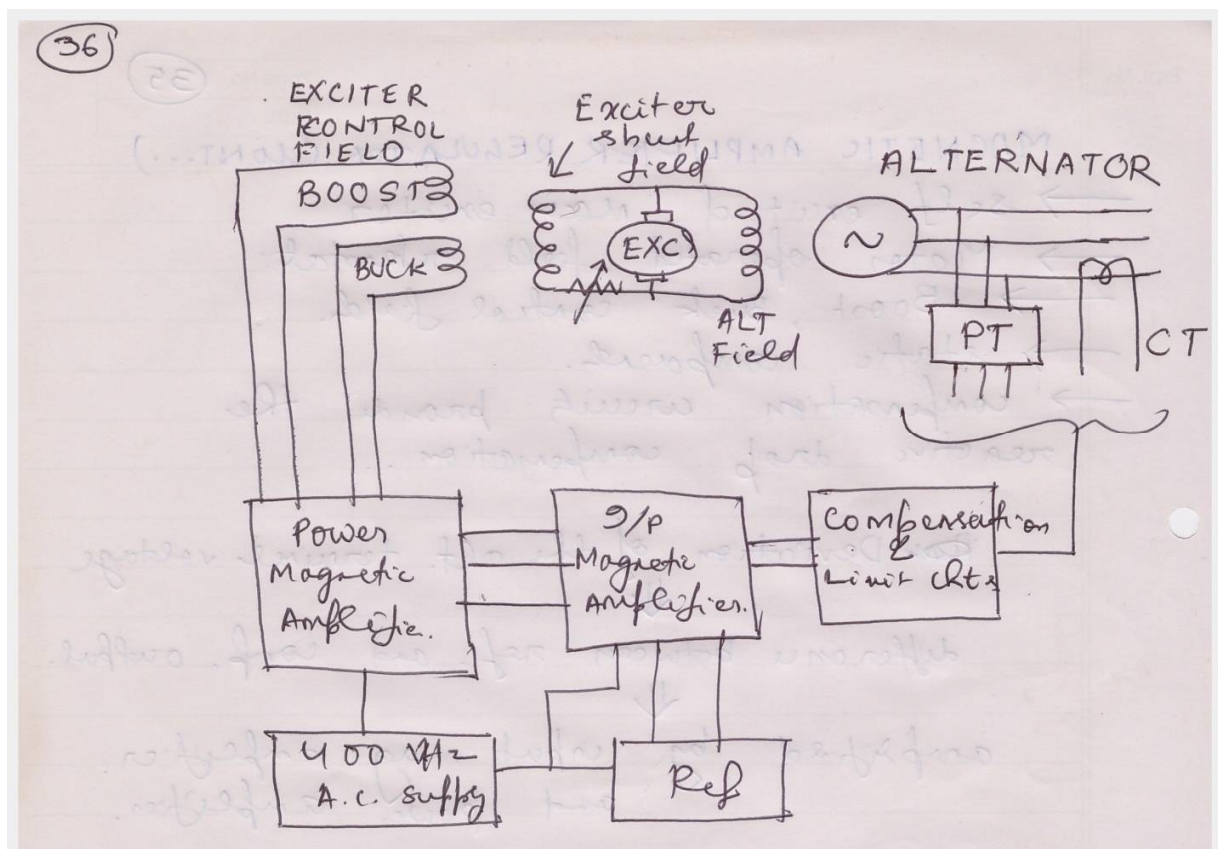 36
EXCITER
CONTROL
FIELD
BOOST
BUCK
Exciter
shunt
field
EXC
ALT
Field
ALTERNATOR
~
PT
CT
Power
Magnetic
Amplifier.
I/P
Magnetic
Amplifier.
Compensation
&
Limit Ckts
400 Hz
A.C. Supply
Ref
35
MAGNETIC AMPLIFIER REGULATOR (CONT...)